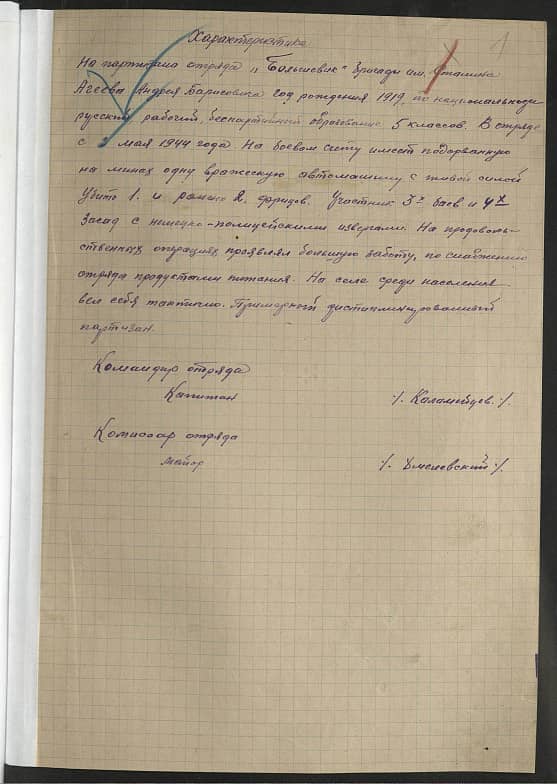 1
Характеристика
На партизана отряда „Большевик" бригады им. Сталина
Агеева Андрея Барисовича год рождения 1919, по национальности
русский рабочий, беспартийный образование 5 классов. В отряде
с мая 1944 года На боевом счету имеет подорванную
на минах одну вражескую автомашину с живой силой
Убито 1. и ранено 2. фрицов. Участник 3х баев и 4х
засад с немецко-полицейскими извергами. На продоволь-
ственных операциях проявлял большую заботу, по снабжению
отряда продуктами питания. На селе среди населения
вел себя тактично. Примерный дисциплинированный
партизан.
Командир отряда
Капитан :/. Каламейцев. :/.
Комиссар отряда
майор :/. :/.